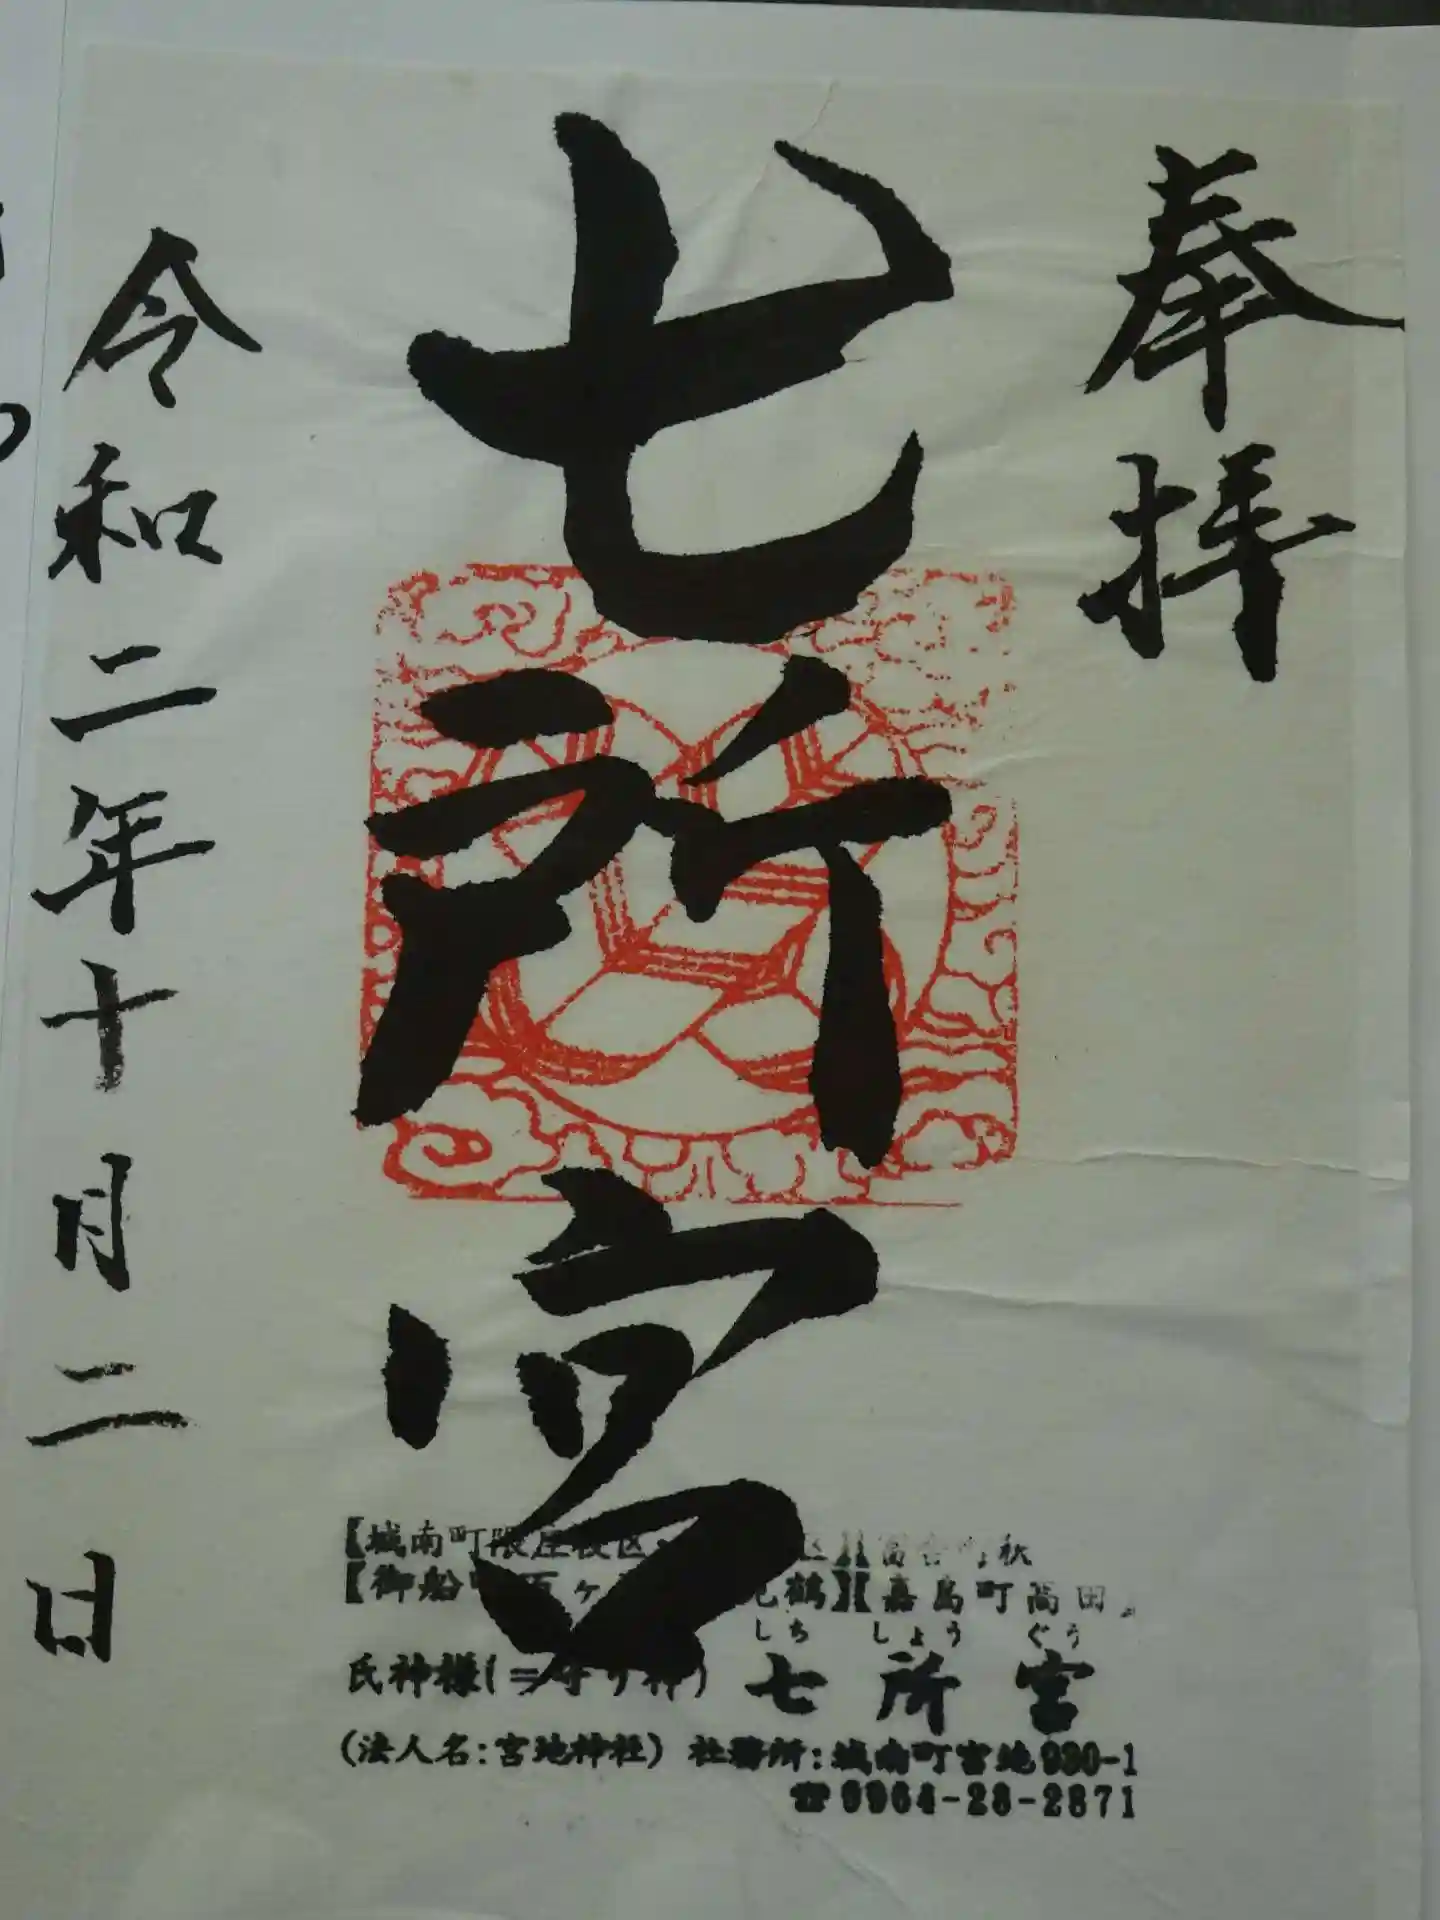 奉拝
七所宮
令和二年十月二日
【城南町隈庄校区 区】【富合町 秋
【御船町 ヶ 鶴】【嘉島町高田
しち しょう ぐう
氏神様(=守り神) 七所宮
(法人名:宮地神社) 社務所:城南町宮地930-1
☎0964-28-2871